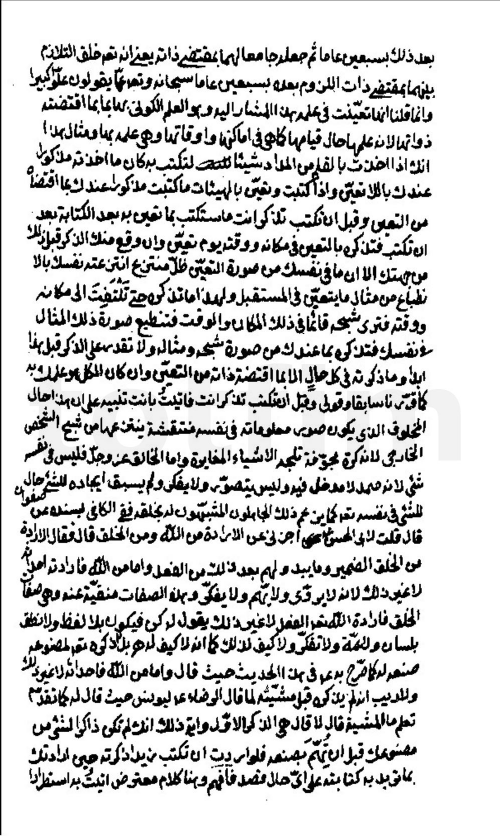 بعد ذلك بسبعين عاما ثم جعله جامعا لهما بمقتضى ذاته يعنى انه تعالى خلق التلازم
بينهما بمقتضى ذات اللزوم بعده بسبعين عاما سبحانه وتعالى عما يقولون علوا كبيرا
وانما قلنا انها تعينت فى علمه بهذا المشار اليه وهو العلم الكونى بها بما اقتضته
ذواتها لانه علم بها حال قيامها كما هى فى اماكنها واوقاتها وهى علمه بها ومثال هذا
انك اذا اخذت بالقلم من المداد شيئا لتكتب به كان ما اخذته مذكورا
عندك باللا تعين واذا كتبت وتعين بالهيئات ما كتبت مذكورا عندك بما اقتضاه
من التعين وقبل ان تكتب تذكر انت ما ستكتب بما تعين به بعد الكتابة بعد
ان تكتب فتذكره بالتعين فى مكانه ووقته يوم تعين وان وقع منك الذكر قبل ذلك
من جهتك الا ان ما فى نفسك من صورة التعين ظل منتزع انتزعته نفسك بالا
نطباع من مثال ما يتعين فى المستقبل ولهذا ما تذكره حتى تلتفت الى مكانه
ووقته فترى شبحه قائما فى ذلك المكان والوقت فتنطبع صورة ذلك المثال
فى نفسك فتذكره بما عندك من صورة شبحه ومثاله ولا تقدر على الذكر قبل هذا
ابدا وما ذكرته فى كل حال الا بما اقتضته ذاته من التعين وان كان الكل هو علمك به
كما قررنا سابقا وقولى وقبل ان تكتب تذكر انت فاتيت بانت تنبيه على ان هذا حال
المخلوق الذى يكون صور معلوماته فى نفسه فتنقشة ينتزعها من شبح الشخص
الخارجى لانه كرة مجوفة تلجه الاشياء المغايرة واما الخالق عز وجل فليس فى نفسه
شئ لانه صمد لا مدخل فيه وليس يتصور ولا يفكر ولم يسبق ايجاده للشئ حال
للشئ فى نفسه تعالى كما يزعم ذلك الجاهلون المشبهون له بخلقه ففى الكافى بسنده عن صفوان
قال قلت لابى الحسن اخبرنى عن الارادة من الله ومن الخلق قال فقال الارادة
من الخلق الضمير وما يبدو لهم بعد ذلك من الفعل واما من الله فارادته احداثه
لا غير ذلك لانه لا يروى ولا يهم ولا يفكر وهذه الصفات منفية عنه وهى صفات
الخلق فارادة الله الفعل لا غير ذلك يقول له كن فيكون بلا لفظ ولا نطق
بلسان ولا همة ولا تفكر ولا كيف لذلك كما انه لا كيف له هـ بل ذكره تعالى لمصنوعه
صنعه له كما صرح به فى هذا الحديث حيث قال واما من الله فاحداثه لا غير ذلك
ولا ريب انه لم يذكره قبل مشيته لما قال الرضا ليونس حيث قال له كما تقدم
تعلم ما المشية قال لا قال هى الذكر الاول واية ذلك انك لم تكن ذاكرا لشئ من
مصنوعك قبل ان تهم بصنعه فلو اردت ان تكتب زيدا ذكرته حين ارادتك
بما تريد به كتابته على اى حال قصد فافهم وهنا كلام معترض اتيت به استطرادا